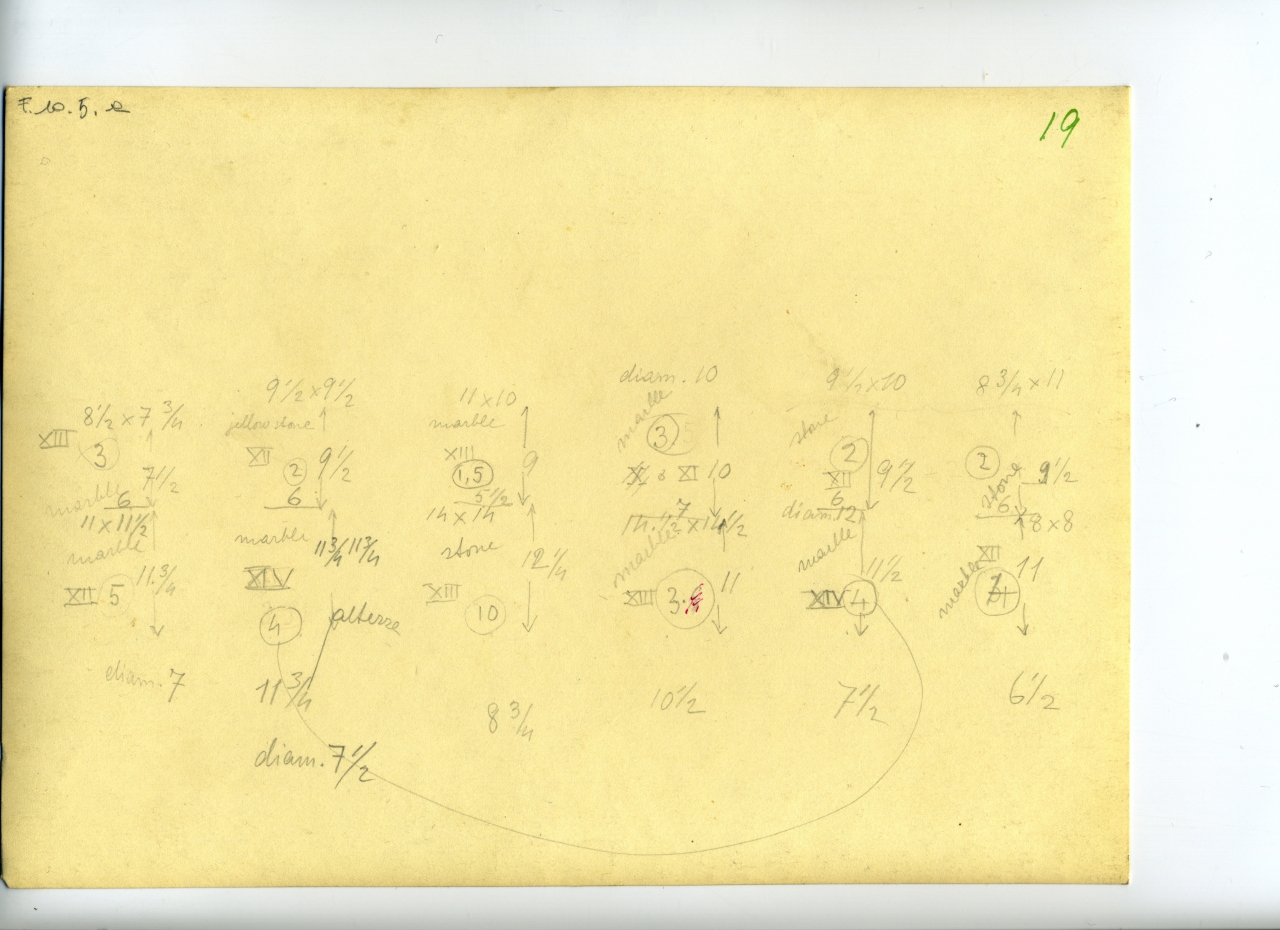 F. 10. 5. a
19
8 1/2 x 7 3/4
XIII
3
7 1/2
marble
6
11 x 11 1/2
marble
11 3/4
XII
5
diam. 7
9 1/2 x 9 1/2
yellow stone
XII
2
9 1/2
6
marble
11 3/4 11 3/4
XIV
4
altezza
11 3/4
diam. 7 1/2
11 x 10
marble
XIII
1,5
9
5 1/2
14 x 14
stone
12 1/4
XIII
10
8 3/4
diam. 10
marble
3
XI
10
7
marble
11
XIII
3.
10 1/2
9 1/2 x 10
stone
2
XII
9 1/2
6
diam. 12
marble
11 1/2
XIV
4
7 1/2
8 3/4 x 11
2
stone
9 1/2
6
8 x 8
XII
11
marble
6 1/2